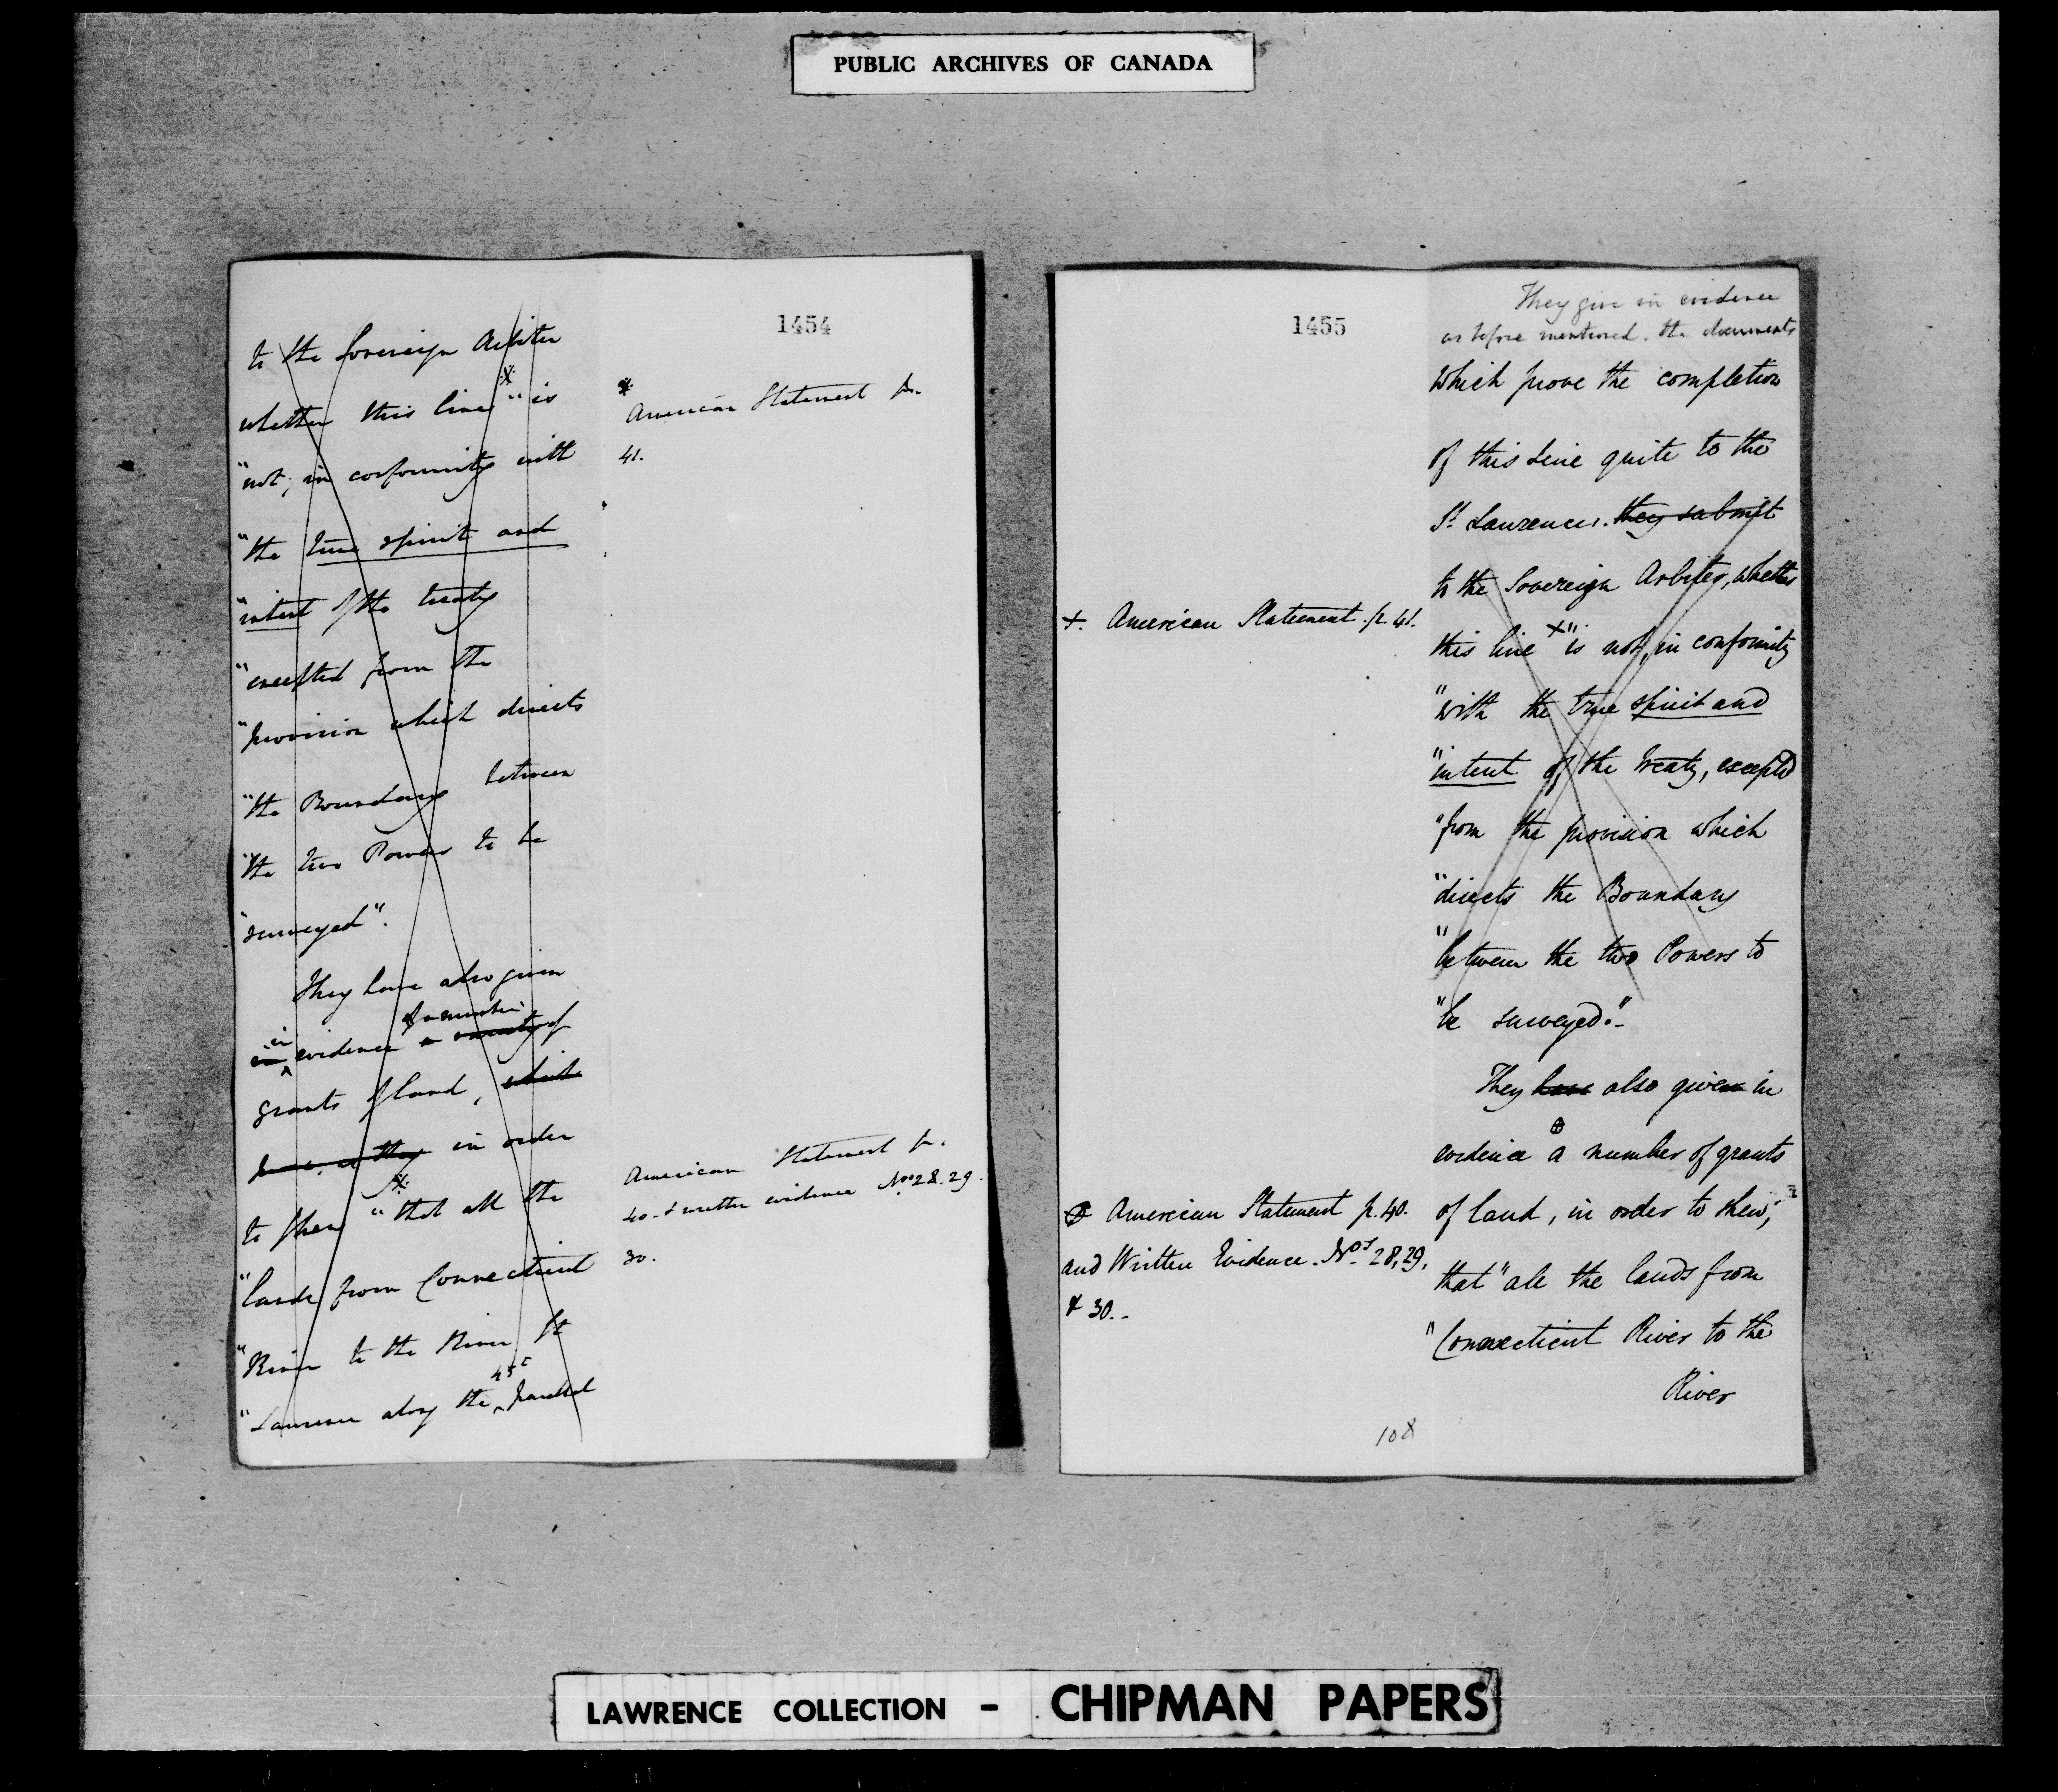 PUBLIC ARCHIVES OF CANADA
1454
to the Sovereign Arbiter
whether this line "is
"not, in conformity with
"the true spirit and
"intent of the treaty
"excepted from the
"provision which directs
"the Boundary between
"the two Powers to be
"surveyed".
They have also given
in
evidence a variety of
a number
grants of land, which
in order
to shew "that all the
"lands from Connecticut
"River to the River St
45th
"Laurence along the parallel
American Statement p.
41.
American Statement p.
40. & written evidence Nos 28. 29.
30.
1455
They give in evidence
as before mentioned. the documents
which prove the completion
of this Line quite to the
St Laurence. they submit
to the Sovereign Arbiter, whether
this line x "is not, in conformity
"with the true spirit and
"intent of the Treaty, excepted
"from the provision which
"directs the Boundary
"between the two Powers to
"be surveyed."-
They have also given in
evidence a number of grants
of land, in order to shew,
that "all the lands from
"Connecticut River to the
River
+. American Statement. p. 41.
⊕ American Statement p. 40.
and Written Evidence. Nos 28, 29,
& 30.-
108
LAWRENCE COLLECTION - CHIPMAN PAPERS